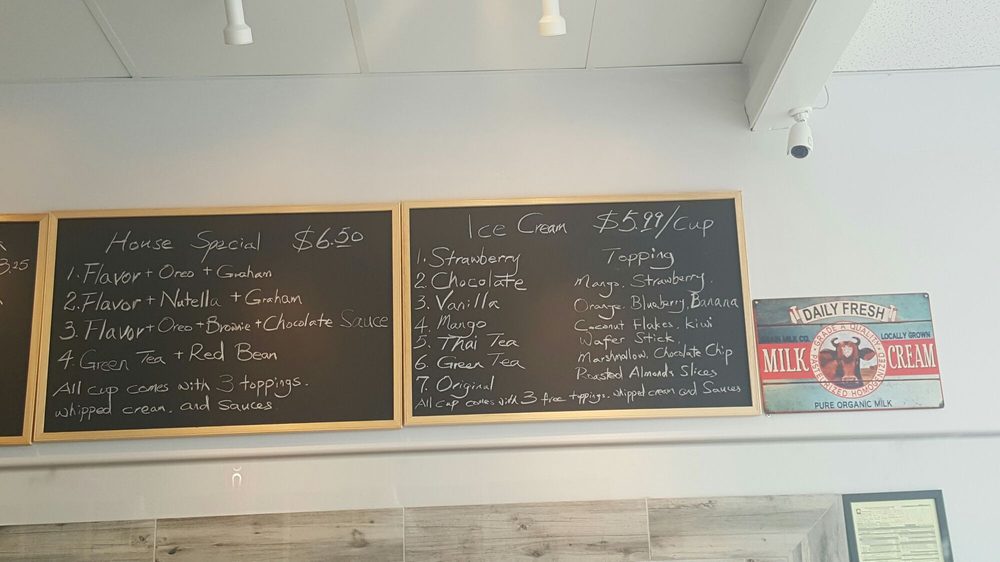 3.25
House Special $6.50
1. Flavor + Oreo + Graham
2. Flavor + Nutella + Graham
3. Flavor + Oreo + Brownie + Chocolate Sauce
4. Green Tea + Red Bean
All cup comes with 3 toppings.
whipped cream. and Sauces
Ice Cream $5.99/Cup
1. Strawberry
2. Chocolate
3. Vanilla
4. Mango
5. Thai Tea
6. Green Tea
7. Original
Topping
Mango. Strawberry.
Orange. Blueberry. Banana
Coconut Flakes. Kiwi
Wafer Stick.
Marshmallow. Chocolate Chip
Roasted Almonds Slices
All cup comes with 3 free toppings. whipped cream and Sauces
DAILY FRESH
MILK CO.
LOCALLY GROWN
GRADE A QUALITY
MILK
CREAM
PASTEURIZED HOMOGENIZED
PURE ORGANIC MILK